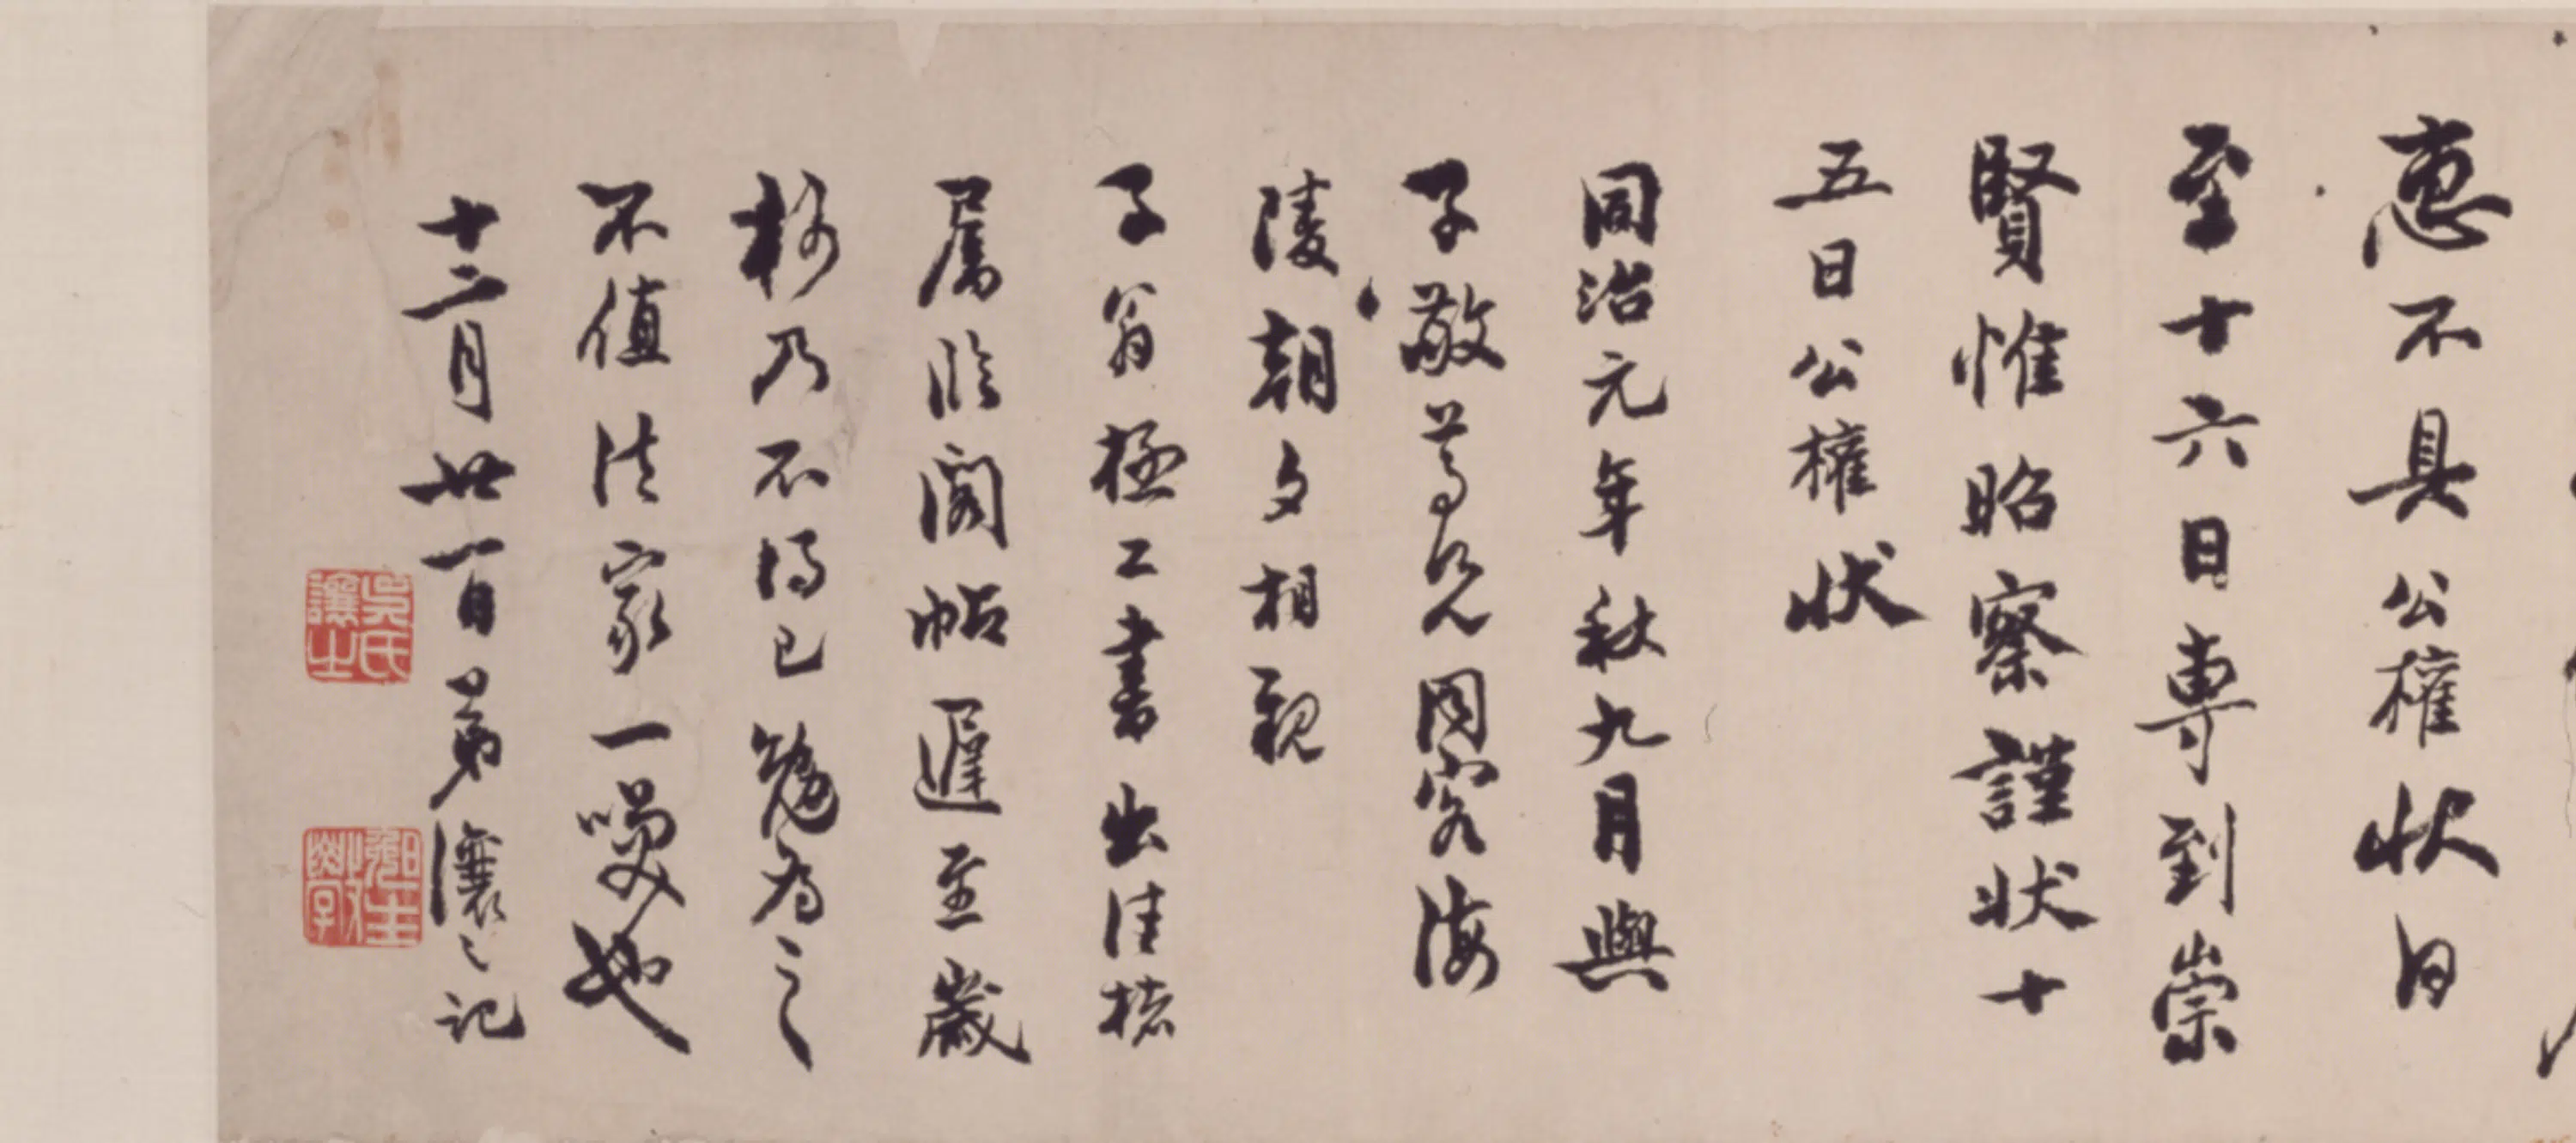 惠不具公權狀日
至十六日専到崇
賢惟昭察謹狀十
五日公權狀
同治元年秋九月與
子敬尊兄同客海
陵朝夕相親
子翁極工書出佳楮
屬臨閣帖遲至歲
杪乃不得已勉為之
不值法家一噱也
十二月廿一日弟讓之記
吳氏讓之